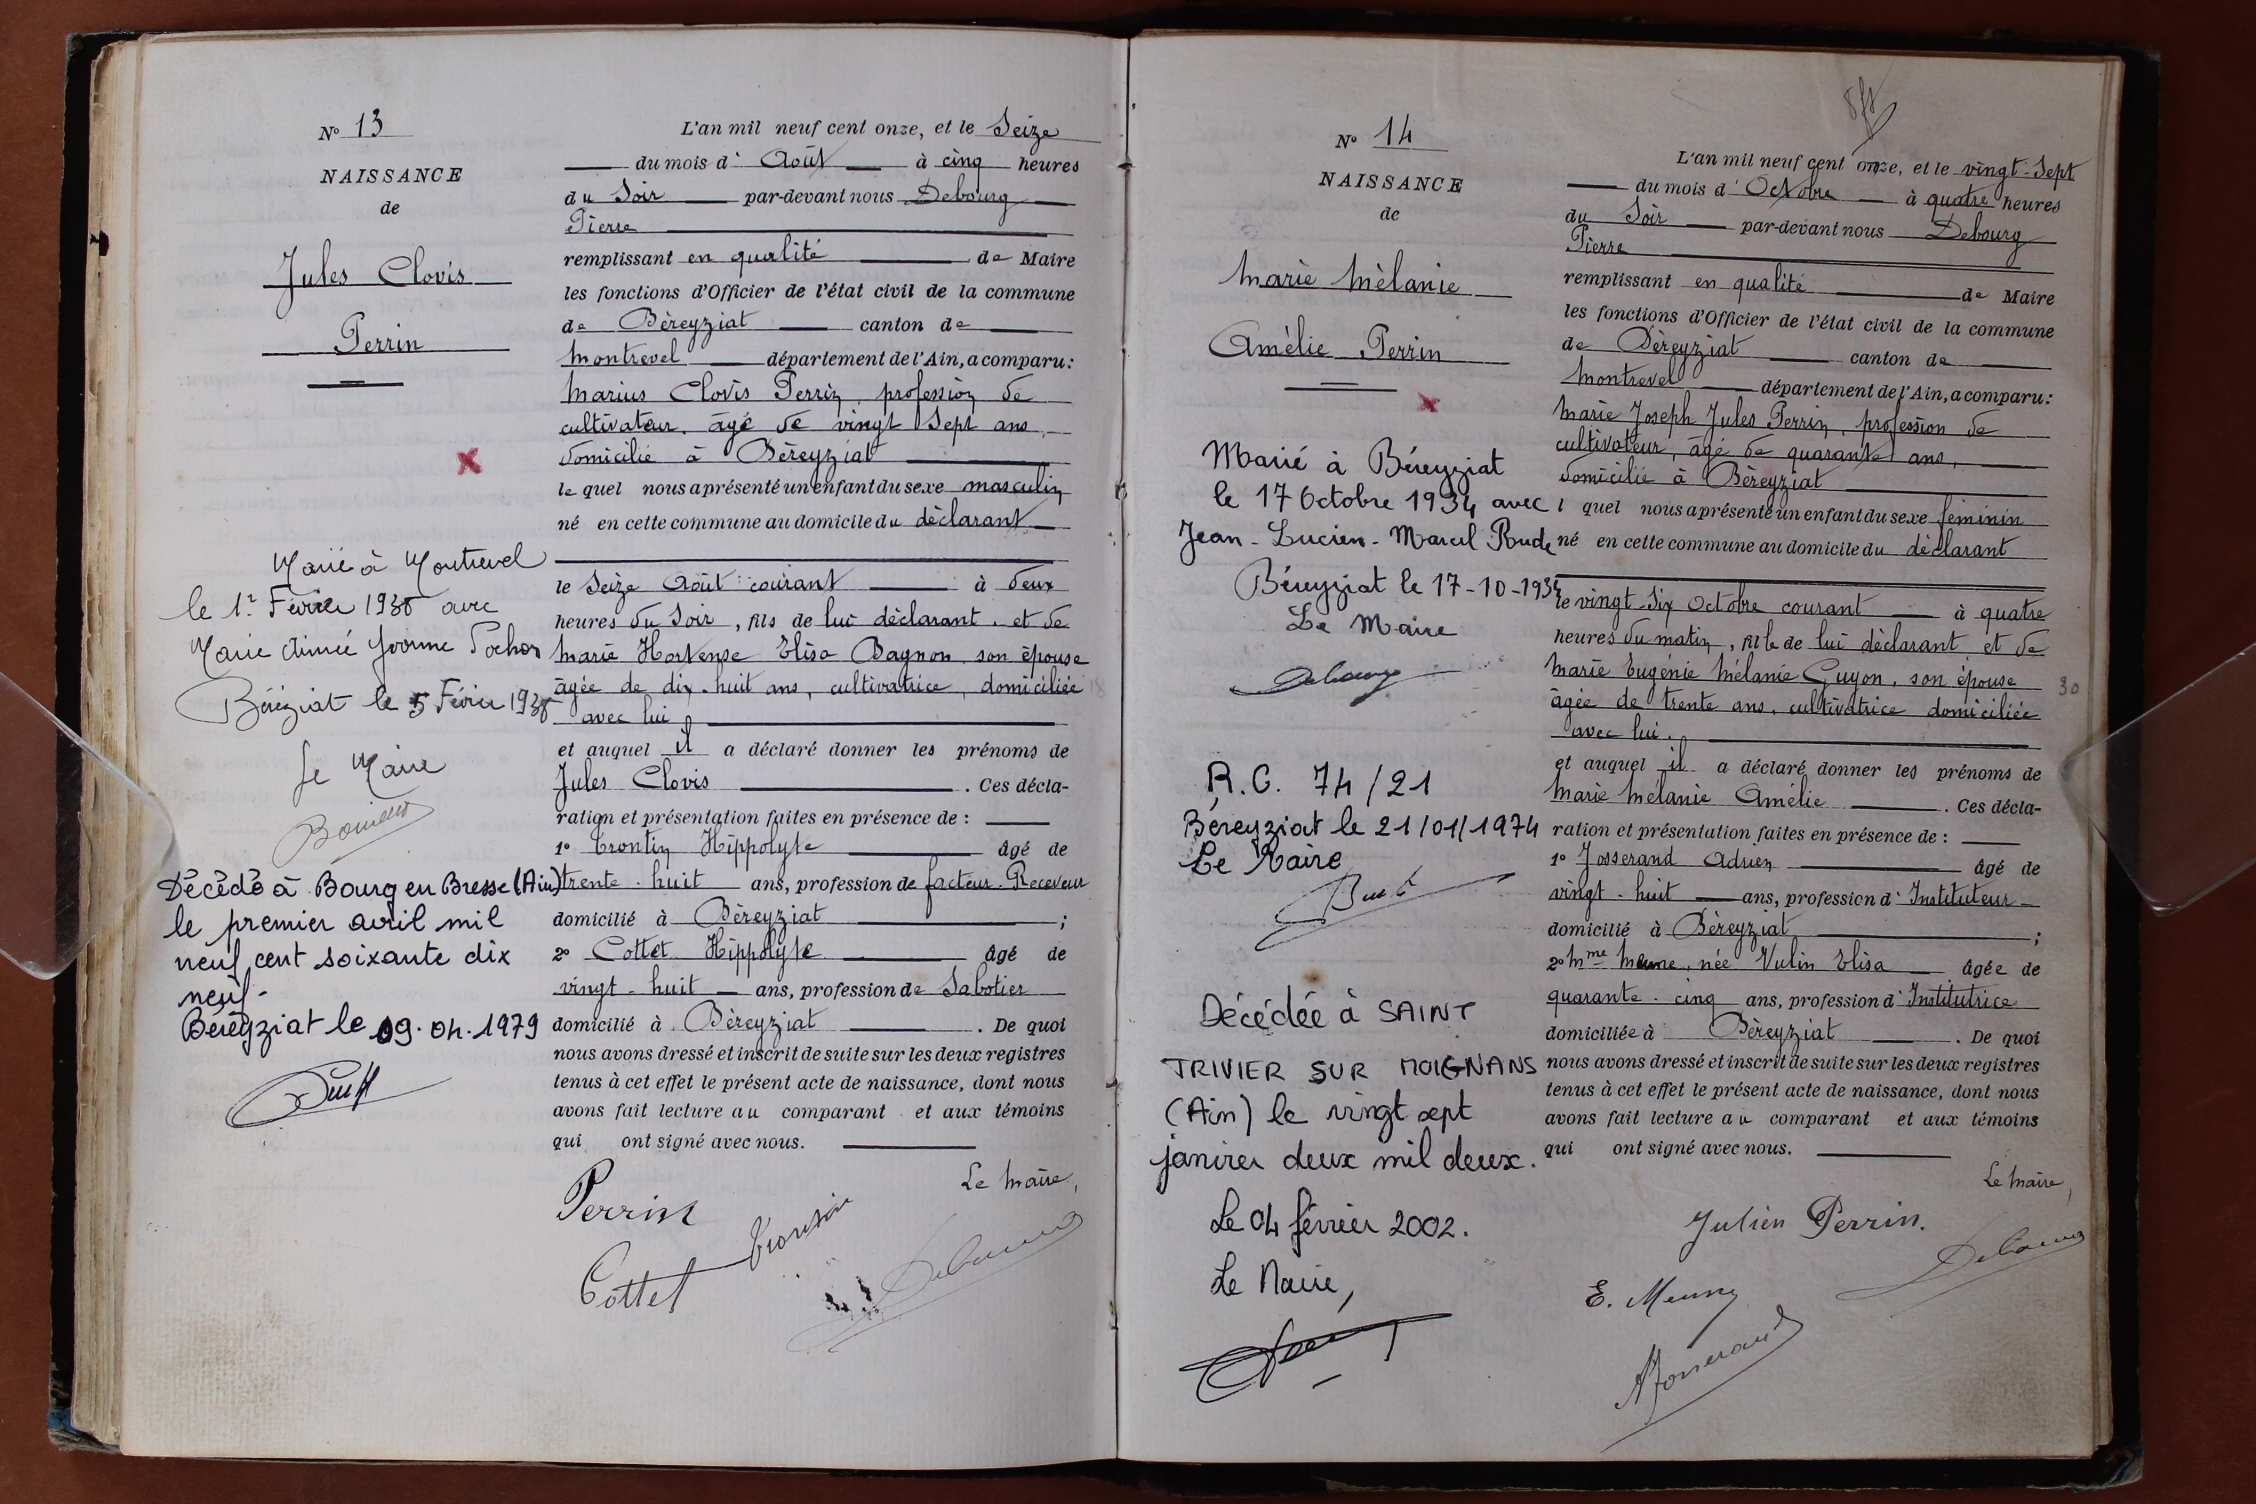 N° 13
NAISSANCE
de
Jules Clovis
Perrin
Marié à Montrevel
le 1er Février 1938 avec
Marie Aimée Yvonne Pochon
Béréziat le 5 Février 1938
Le Maire
Décédé à Bourg en Bresse (Ain)
le premier avril mil
neuf cent soixante dix
neuf.
Béréyziat le 09.04.1979
L'an mil neuf cent onze, et le Seize
du mois d' Août à cinq heures
du Soir par-devant nous Debourg
Pierre
remplissant en qualité de Maire
les fonctions d'Officier de l'état civil de la commune
de Bèreyziat canton de
Montrevel département de l'Ain, a comparu:
Marius Clovis Perrin, profession de
cultivateur, âgé de vingt Sept ans,
domicilié à Bèreyziat
le quel nous a présenté un enfant du sexe masculin
né en cette commune au domicile du déclarant
le Seize Août courant à deux
heures du Soir, fils de lui déclarant, et de
Marie Hortense Elisa Bagnon son épouse
âgée de dix-huit ans, cultivatrice, domiciliée
avec lui
et auquel il a déclaré donner les prénoms de
Jules Clovis. Ces décla-
ration et présentation faites en présence de :
1° Trontin Hippolyte âgé de
trente-huit ans, profession de facteur-Receveur
domicilié à Bèreyziat ;
2° Cottet Hippolyte âgé de
vingt-huit ans, profession de Sabotier
domicilié à Bèreyziat. De quoi
nous avons dressé et inscrit de suite sur les deux registres
tenus à cet effet le présent acte de naissance, dont nous
avons fait lecture au comparant et aux témoins
qui ont signé avec nous.
Le Maire,
Perrin
Trontin
Cottet
Debourg
N° 14
NAISSANCE
de
Marie Mélanie
Amélie Perrin
Marié à Béreyziat
le 17 Octobre 1934 avec
Jean-Lucien-Marcel Rude
Béreyziat le 17-10-1934
Le Maire
Debourg
R.C. 74/21
Béreyziat le 21/01/1974
Le Maire
Décédée à SAINT
TRIVIER SUR MOIGNANS
(Ain) le vingt sept
janvier deux mil deux.
Le 04 février 2002.
Le Maire,
L'an mil neuf cent onze, et le vingt-Sept
du mois d' Octobre à quatre heures
du Soir par-devant nous Debourg
Pierre
remplissant en qualité de Maire
les fonctions d'Officier de l'état civil de la commune
de Bèreyziat canton de
Montrevel département de l'Ain, a comparu:
Marie Joseph Jules Perrin, profession de
cultivateur, âgé de quarante ans,
domicilié à Bèreyziat
l quel nous a présenté un enfant du sexe féminin
né en cette commune au domicile du déclarant
le vingt-Six Octobre courant à quatre
heures du matin, fille de lui déclarant et de
Marie Eugénie Mélanie Guyon, son épouse
âgée de trente ans, cultivatrice domiciliée
avec lui.
30
et auquel il a déclaré donner les prénoms de
Marie Mélanie Amélie. Ces décla-
ration et présentation faites en présence de :
1° Josserand Adrien âgé de
vingt-huit ans, profession d' Instituteur
domicilié à Bèreyziat ;
2° Mme Meune, née Vulin Elisa âgée de
quarante-cinq ans, profession d' Institutrice
domiciliée à Bèreyziat. De quoi
nous avons dressé et inscrit de suite sur les deux registres
tenus à cet effet le présent acte de naissance, dont nous
avons fait lecture au comparant et aux témoins
qui ont signé avec nous.
Le Maire,
Julien Perrin.
Debourg
E. Meune
A Josserand